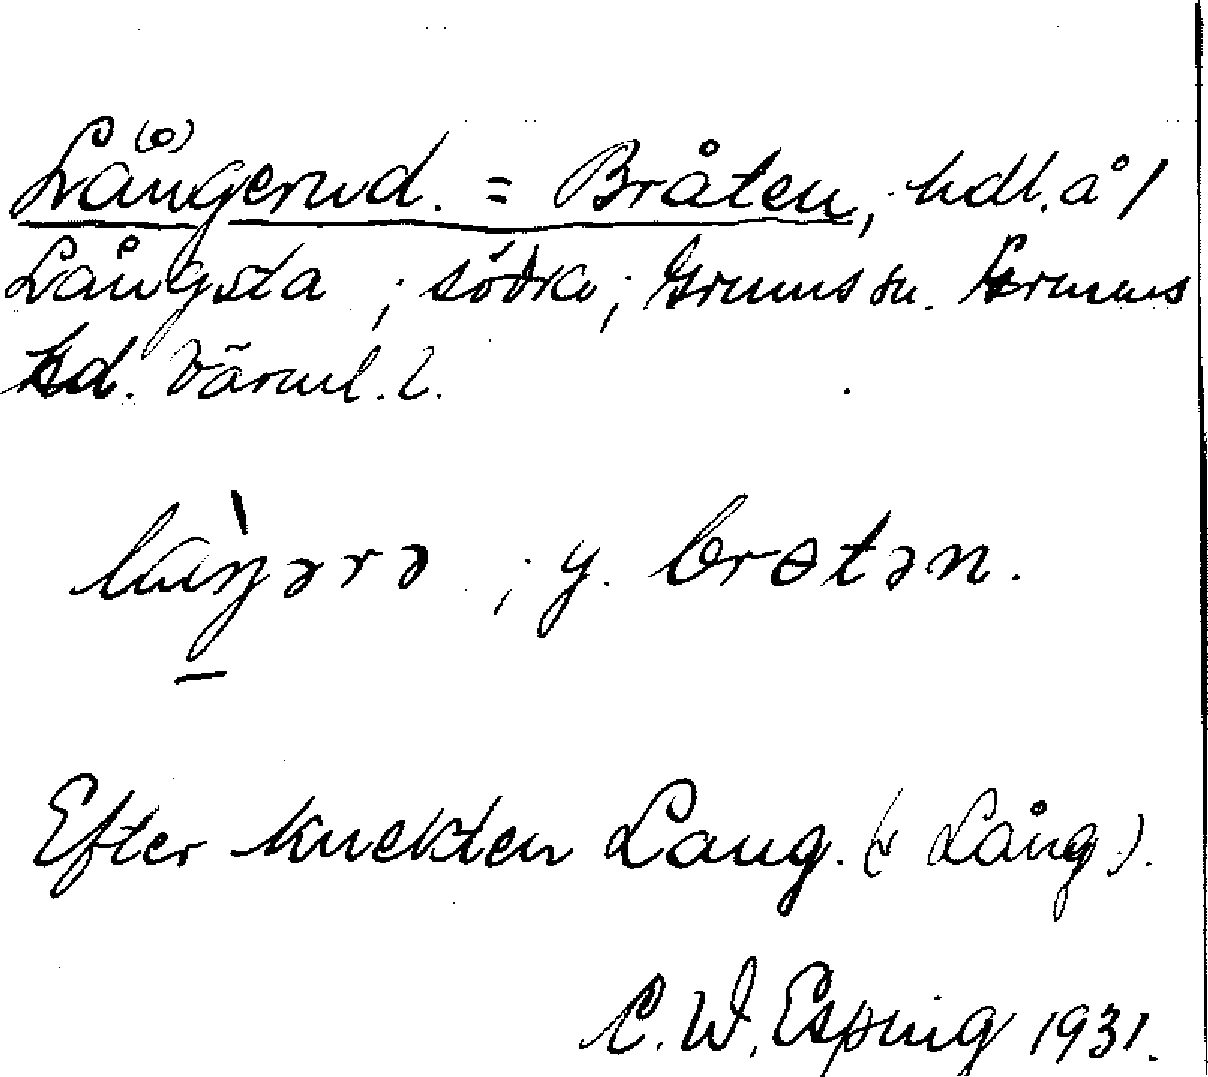 Lån(o)gerud. = Bråten, hdl. å 1
Långsta ; södra ; Grums sn. Grums
hd. Värml. l.
laŋərə ; y. brɵtən.
Efter knekten Lang. (x Lång).
C. W. Esping 1931.